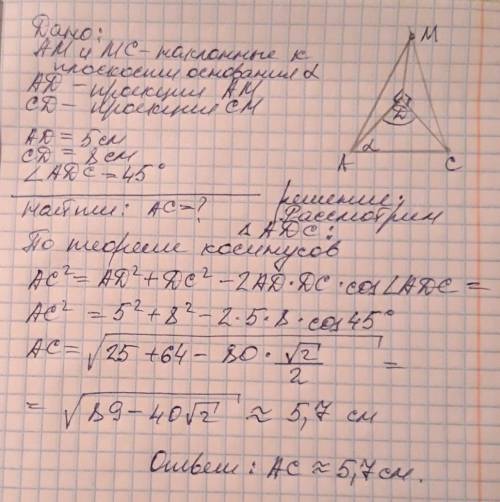 Дано:
АМ и МС - наклонные к
плоскости основания α
AD - проекция АМ
CD - проекция СМ
AD = 5 см
CD = 8 см
∠ADC = 45°
Найти: AC = ?
Решение:
Рассмотрим
△ADC:
По теореме косинусов
AC² = AD² + DC² - 2AD·DC·cos∠ADC =
AC² = 5² + 8² - 2·5·8·cos45°
AC = √(25 + 64 - 80·√2/2) =
= √(89 - 40√2) ≈ 5,7 см
Ответ: AC ≈ 5,7 см.
M
D
A
α
C